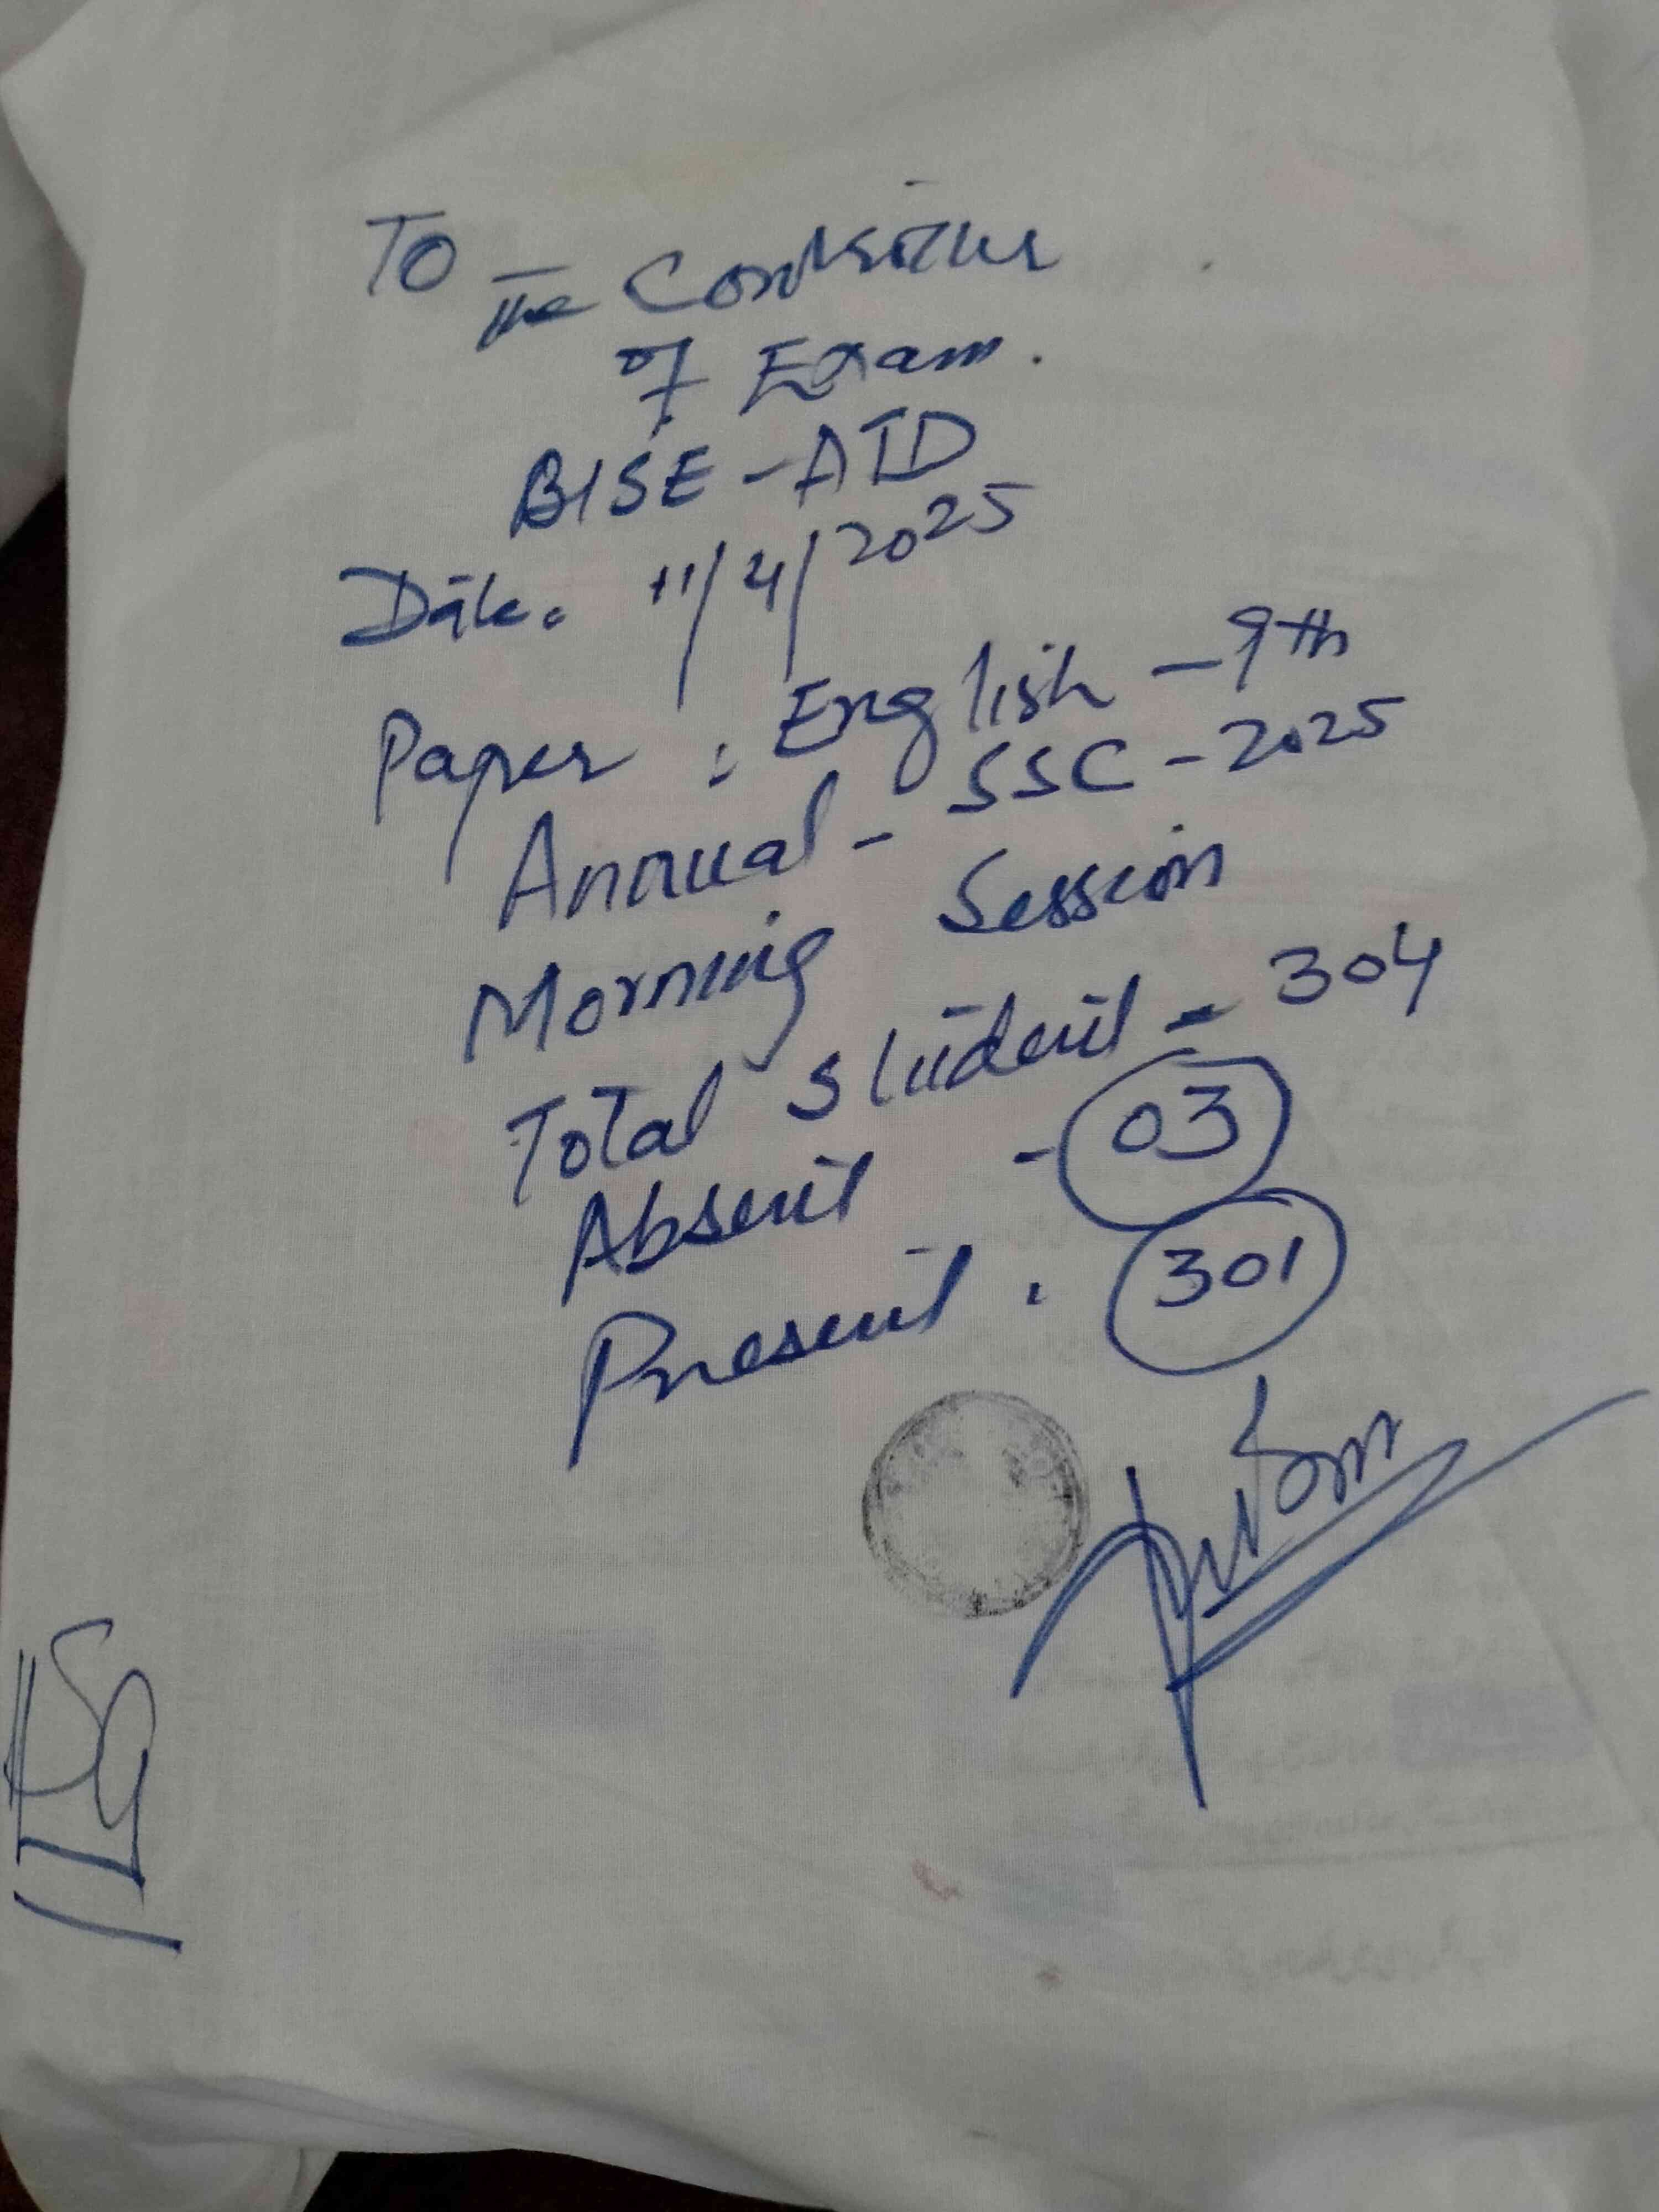 To
The Controller
of Exam.
BISE - ATD
Date. 11/4/2025
Paper : English - 9th
Annual - SSC - 2025
Morning Session
Total Student - 304
Absent - 03
Present : 301